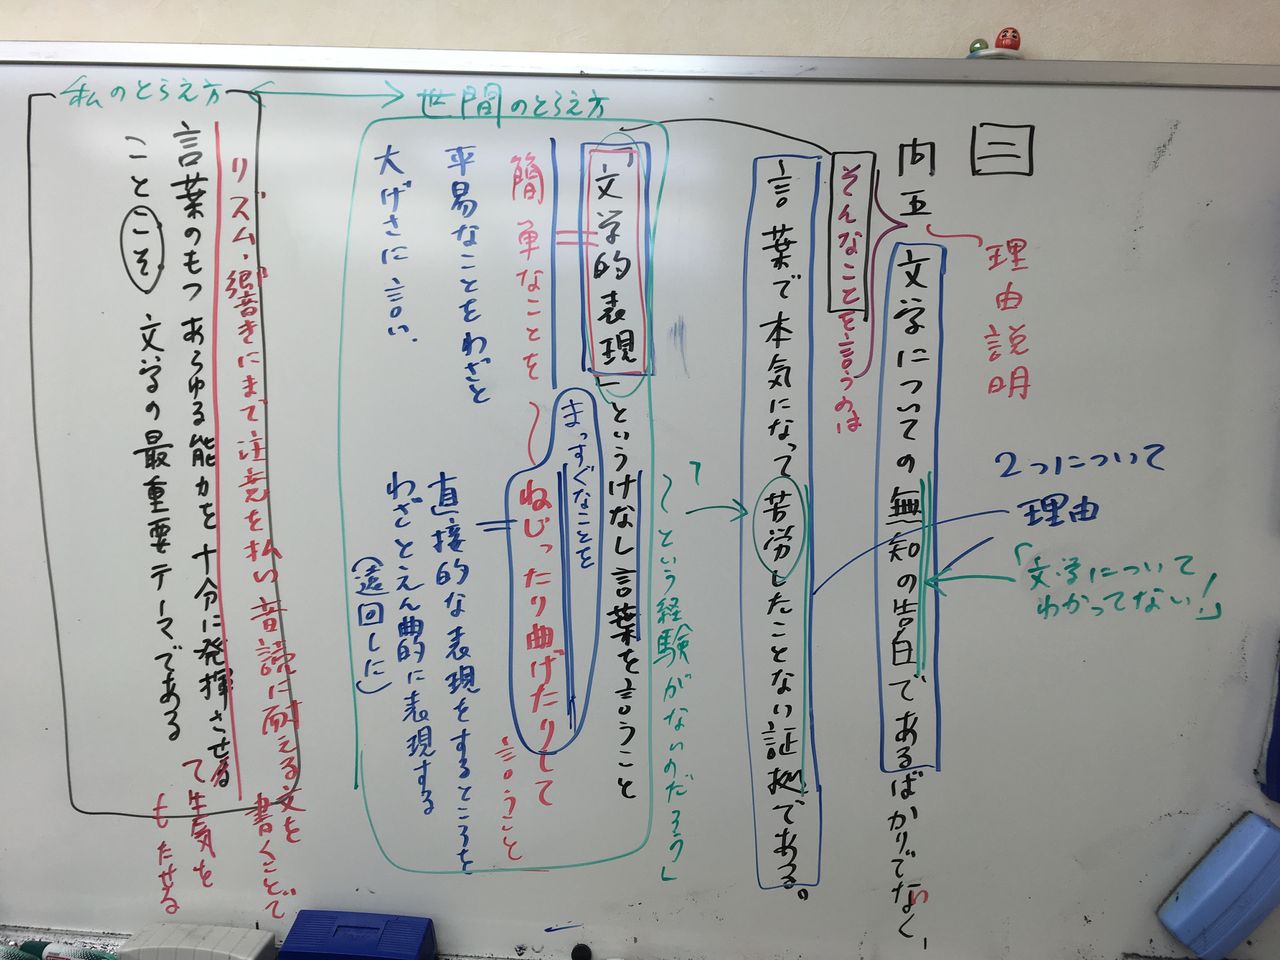 三
問五
理由説明
文学についての無知の告白であるばかりでなく、
い
2つについて
理由
「文学について
わかってない!」
そんなことを言うのは
言葉で本気になって苦労したことない証拠である。
「〜という経験がないのだろう」
世間のとらえ方
「文学的表現」というけなし言葉を言うこと
まっすぐなことを
簡単なことを〜ねじったり曲げたりして言うこと
平易なことをわざと
大げさに言い、
直接的な表現をするところを
わざとえん曲的に表現する
(遠回しに)
私のとらえ方
リズム、響きにまで注意を払い音読に耐える文を
書くことで
言葉のもつあらゆる能力を十分に発揮させる
て生気を
もたせる
ことこそ文学の最重要テーマである